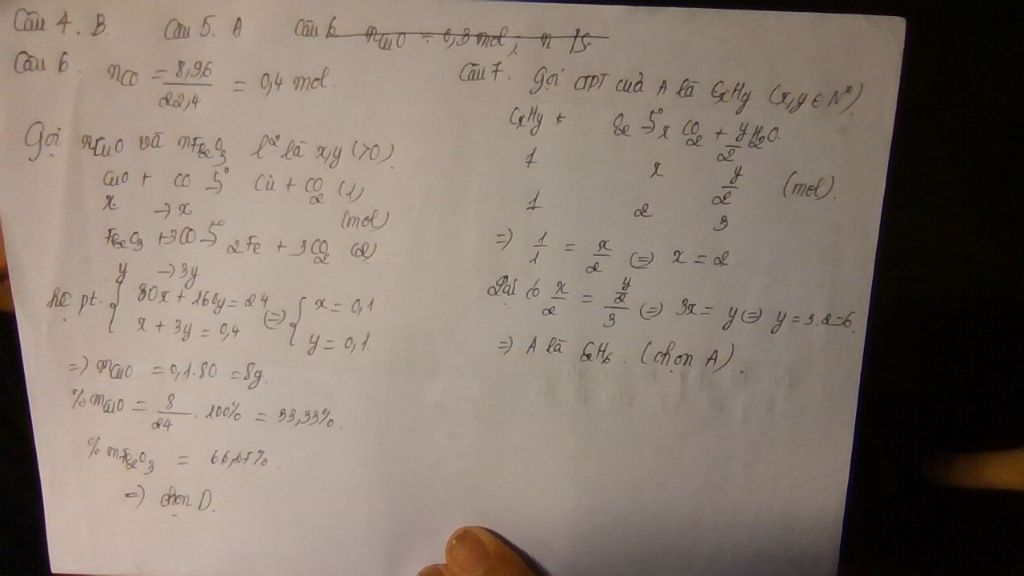 Câu 4. B. Câu 5. A
Câu 6. nCO = 8,96 / 22,4 = 0,4 mol.
Gọi nCuO và nFe2O3 lần lượt là x, y (>0).
CuO + CO →t° Cu + CO2 (1)
x → x (mol)
Fe2O3 + 3CO →t° 2Fe + 3CO2 (2)
y → 3y
hệ pt. { 80x + 160y = 24 <=> { x = 0,1
x + 3y = 0,4 y = 0,1.
=> mCuO = 0,1.80 = 8g.
% mCuO = 8/24 . 100% = 33,33%.
% mFe2O3 = 66,67%.
=> chọn D.
Câu 7. Gọi CTPT của A là CxHy (x, y ∈ N*)
CxHy + →t° x CO2 + y/2 H2O
1 x y/2 (mol).
1 2 3
=> 1/1 = x/2 <=> x = 2
x/2 = (y/2)/3 <=> 3x = y <=> y = 3.2=6.
=> A là C2H6. (chọn A).